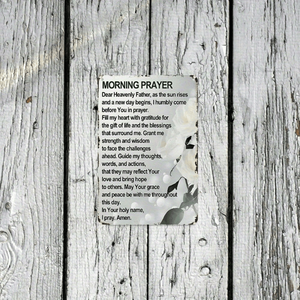 MORNING PRAYER
Dear Heavenly Father, as the sun rises
and a new day begins, I humbly come
before You in prayer.
Fill my heart with gratitude for
the gift of life and the blessings
that surround me. Grant me
strength and wisdom
to face the challenges
ahead. Guide my thoughts,
words, and actions,
that they may reflect Your
love and bring hope
to others. May Your grace
and peace be with me throughout
this day.
In Your holy name,
I pray. Amen.